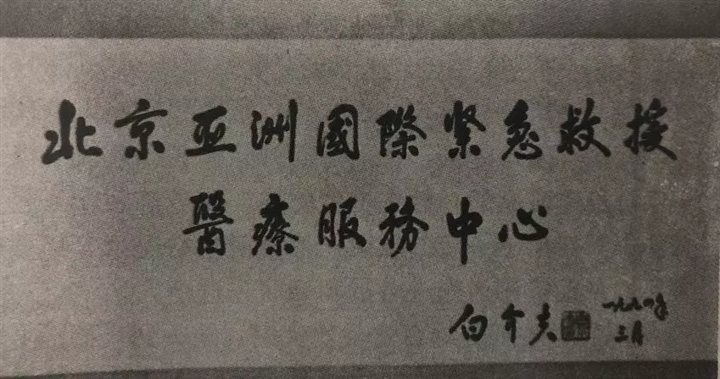 北京亚洲國際緊急救援
醫療服務中心
白介夫 一九九四年
三月